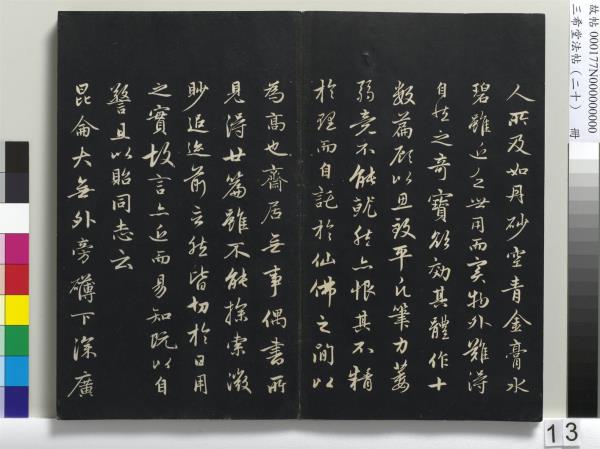 人所及如丹砂空青金膏水
碧雖近乏世用而實物外難得
自然之奇寶欲效其體作十
數篇顧以思致平凡筆力萎
弱竟不能就然亦恨其不精
於理而自託於仙佛之間以
為高也齋居無事偶書所
見得廿篇雖不能探索微
眇追迹前言然皆切於日用
之實故言亦近而易知既以自
警且以貽同志云
昆侖大無外旁礴下深廣
故帖 000177N000000000
三希堂法帖(二十) 冊
13